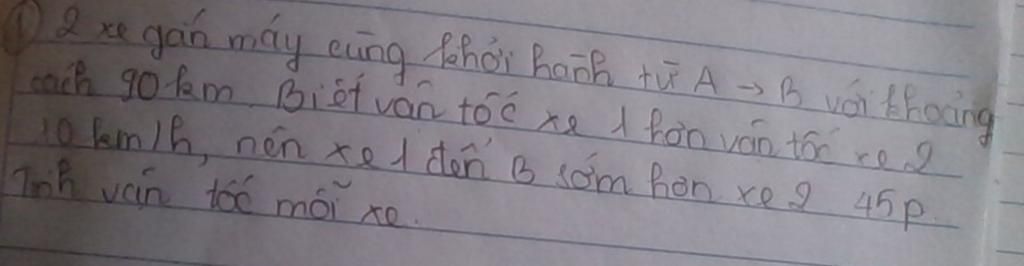 ① 2 xe gắn máy cùng khởi hành từ A → B với khoảng
cách 90 km. Biết vận tốc xe 1 hơn vận tốc xe 2
10 km/h, nên xe 1 đến B sớm hơn xe 2 45p.
Tính vận tốc mỗi xe.